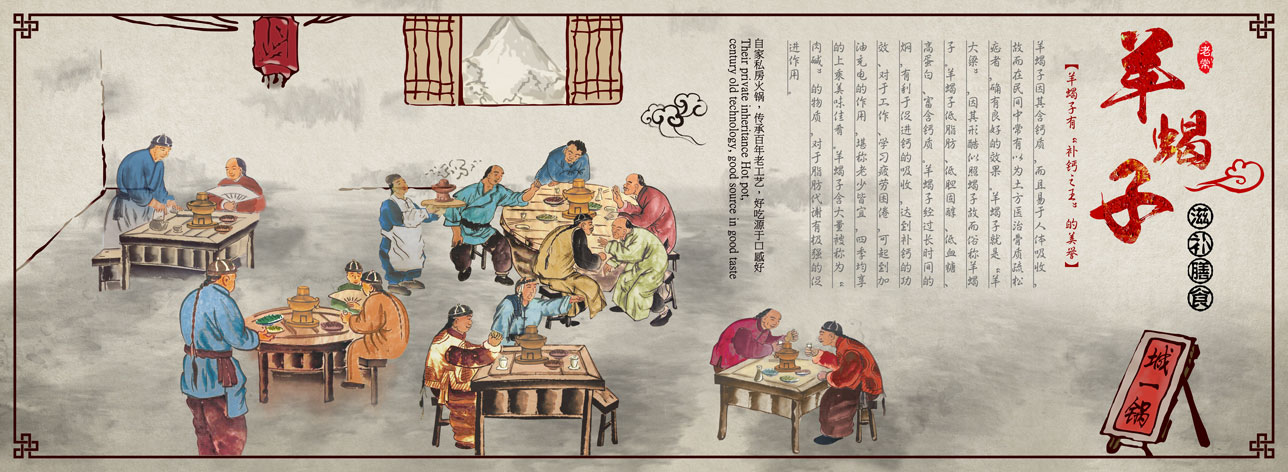 老常
羊蝎子
滋补膳食
【羊蝎子有“补钙之王”的美誉】
羊蝎子因其含钙质,而且易于人体吸收,
故而在民间中常有以为土方医治骨质疏松
症者,确有良好的效果。羊蝎子就是“羊
大梁”,因其形酷似照蝎子故而俗称羊蝎
子。羊蝎子低脂肪、低胆固醇、低血糖、
高蛋白、富含钙质,羊蝎子经过长时间的
焖,有利于促进钙的吸收,达到补钙的功
效,对于工作、学习疲劳困倦,可起到加
油充电的作用,堪称老少皆宜,四季均享
的上乘美味佳肴。羊蝎子含大量被称为“
肉碱”的物质,对于脂肪代谢有极强的促
进作用。
自家私房火锅,传承百年老工艺,好吃源于口感好
Their private inheritance Hot pot,
century old technology, good source in good taste
城一锅